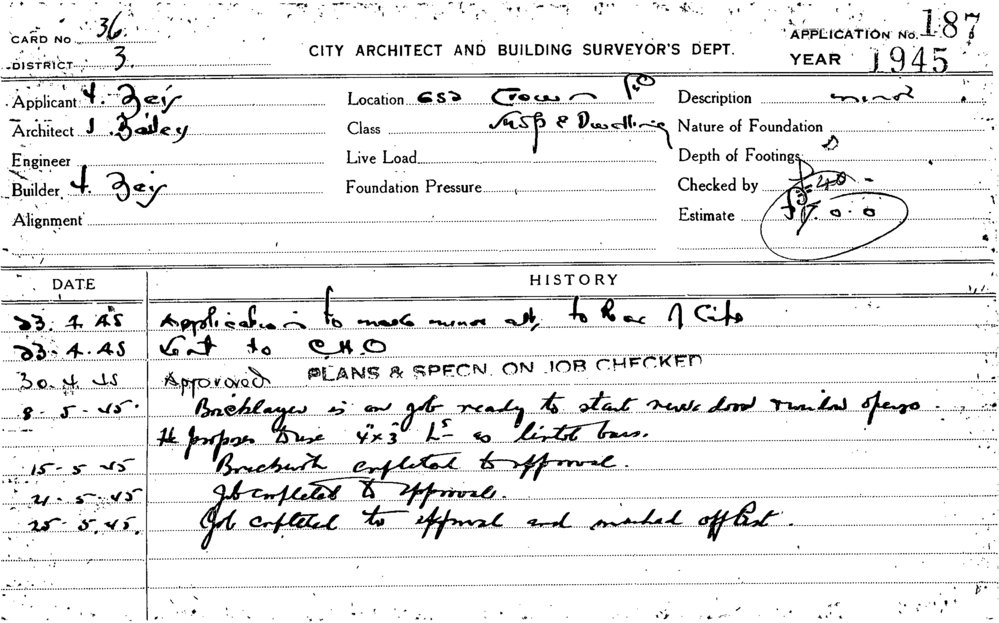 CARD No 36
DISTRICT 3.
CITY ARCHITECT AND BUILDING SURVEYOR'S DEPT.
APPLICATION No. 187
YEAR 1945
Applicant
Architect J. Bailey
Engineer
Builder
Alignment
Location 652 Crown
Class & Dwelling
Live Load
Foundation Pressure
Description minor
Nature of Foundation
Depth of Footings
Checked by
Estimate
DATE
HISTORY
23.4.45 Application to make minor alt, to Rear of
23.4.45 Sent to C.H.O
30.4.45 Approved PLANS & SPECN. ON JOB CHECKED
8-5-45 Bricklayer is on job ready to start new door
He proposes to use 4"x3" Ls as lintol bars.
15-5-45 Brickwork completed to approval.
21-5-45 Job completed to approval.
25.5.45. Job completed to approval and marked off list.